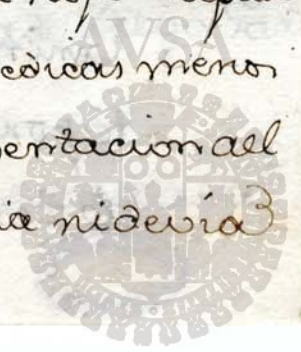 AVSA
còicas menos
entacion del
ia nidevía